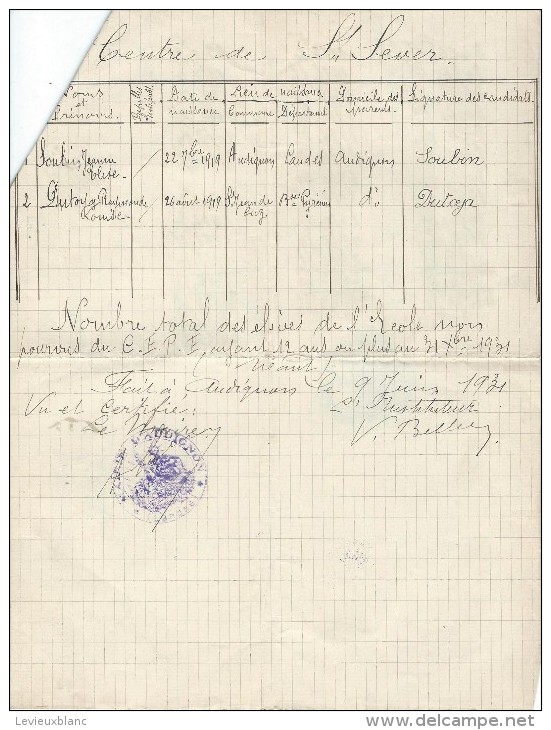 Centre de St Sever.
Noms et Prénoms | Date de naissance | Lieu de naissance | Commune | Département | Domicile des parents | Signature des candidats
Soubin Jeanne Elise | 22 7bre 1919 | Audignon | Landes | Audignon | Soubin
2 | Raymonde | 26 août 1919 | St Jean de Luz | Bses Pyrénées | do
Nombre total des élèves de l'Ecole non
pourvus du C.E.P.E. ayant 12 ans ou plus au 31 Xbre 1931
(néant)
Fait à Audignon le 9 Juin 1931
Vu et certifié: L'Instituteur
Le Maire, V.
MAIRIE D'AUDIGNON
Levieuxblanc
delcampe.net